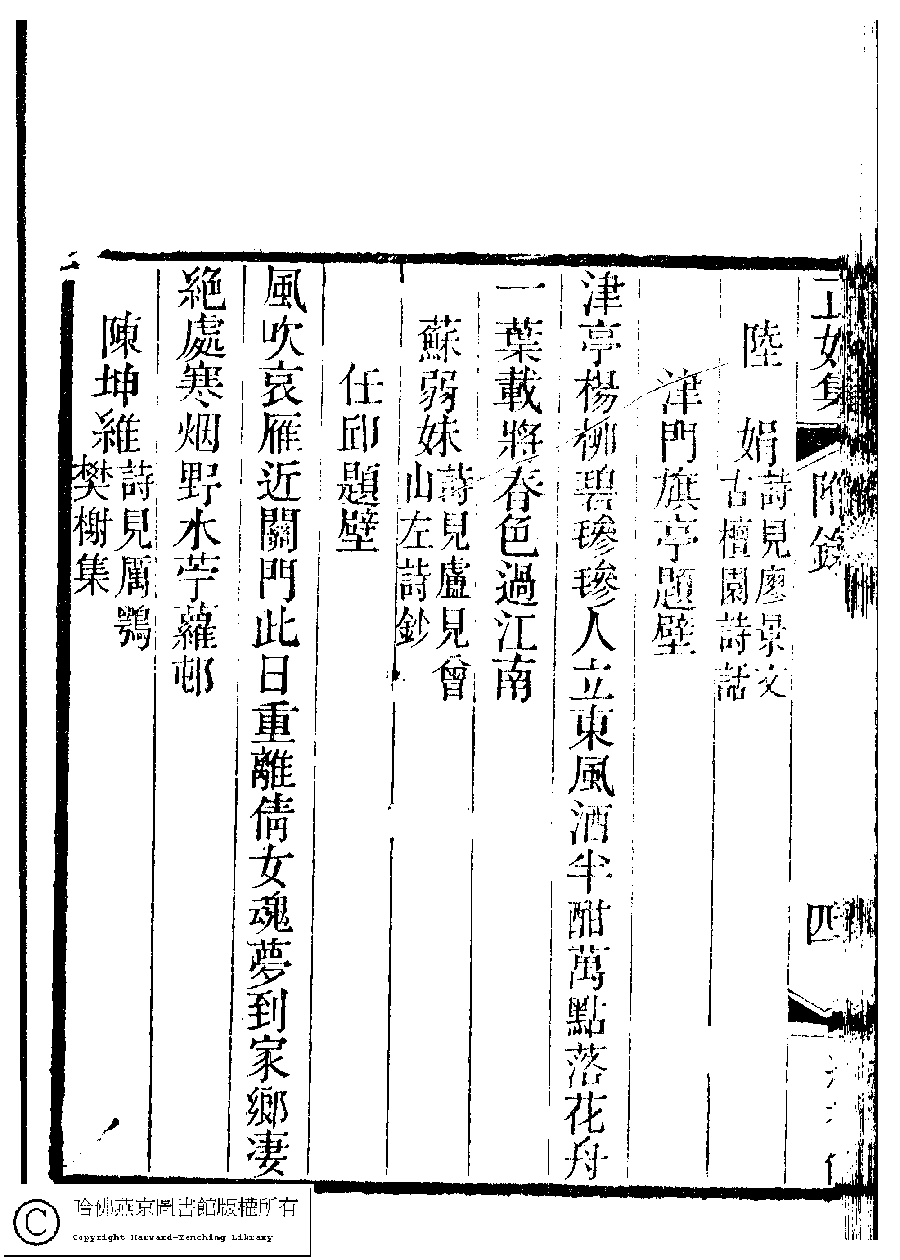 陸　娟詩見廖景文
古檀園詩話
津門旗亭題壁
津亭楊柳碧毿毿人立東風酒半酣萬點落花舟
一葉載將春色過江南
蘇弱妹詩見盧見曾
山左詩鈔
任邱題壁
風吹哀雁近關門此日重離倩女魂夢到家鄉淒
絕處寒烟野水苧蘿邨
陳坤維詩見厲鶚
樊榭集
附錄
四
哈佛燕京圖書館版權所有
Copyright Harvard-Yenching Library